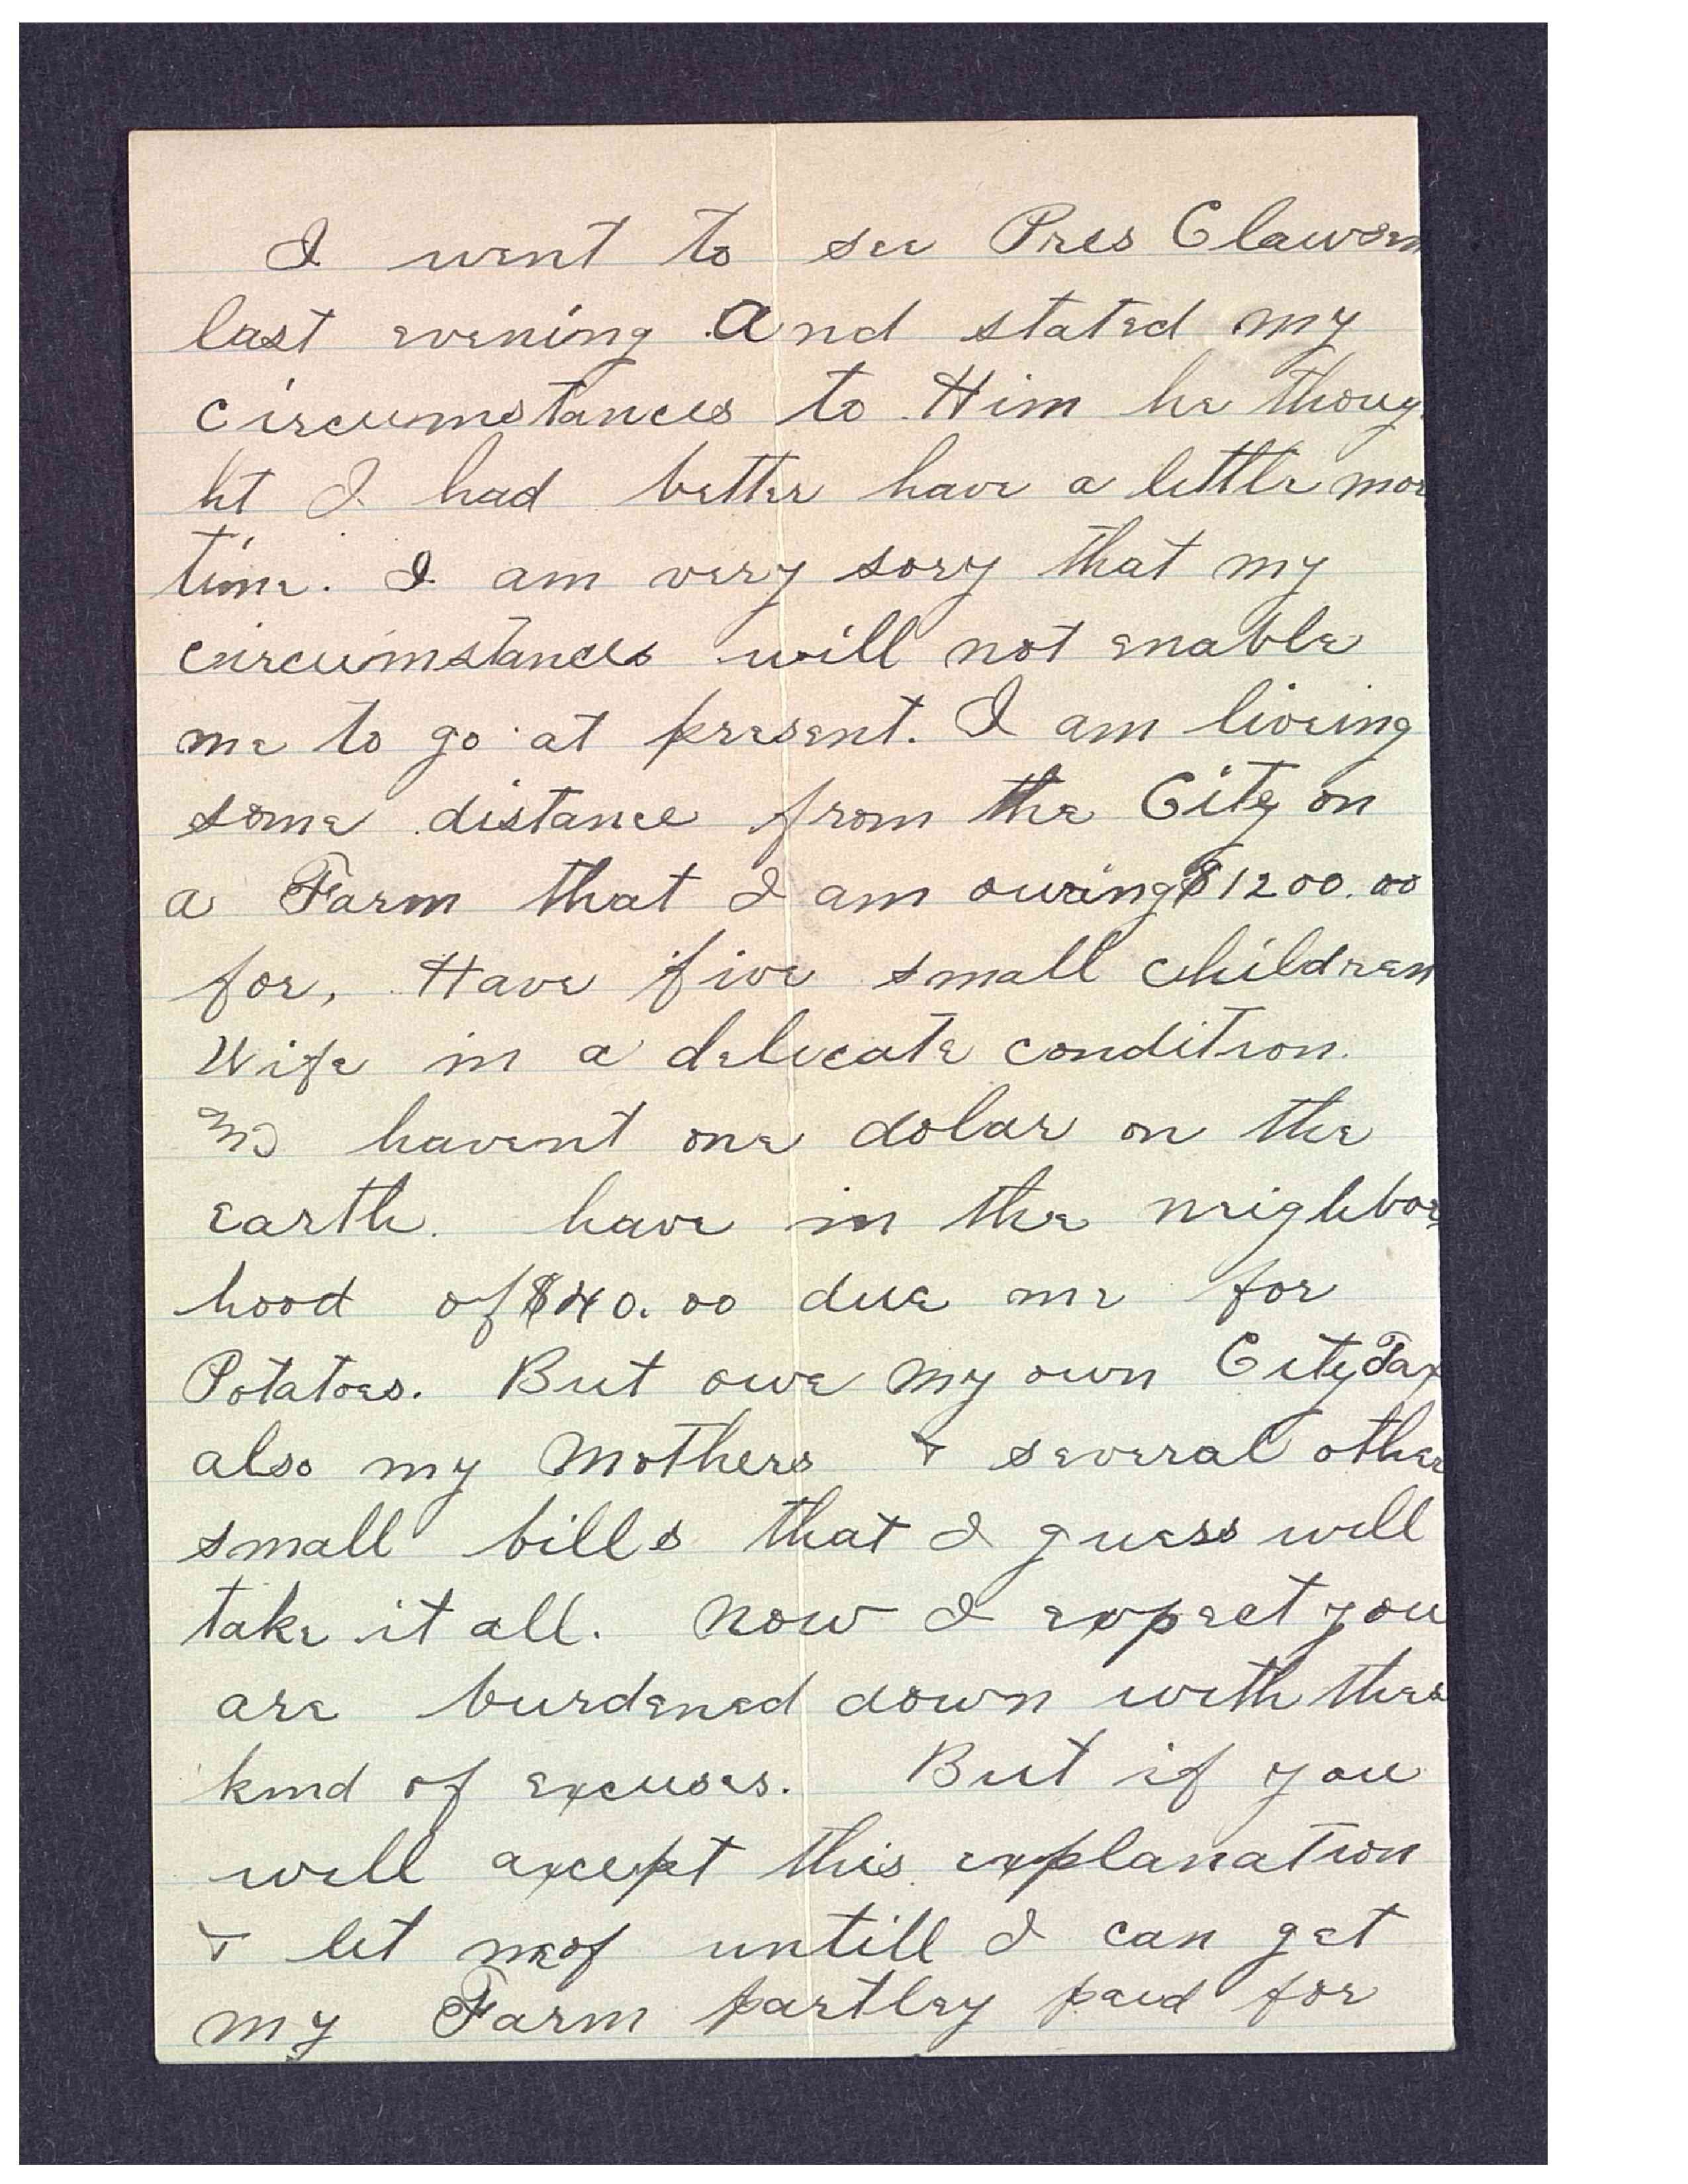 I went to see Pres Clawson
last evening And stated my
circumstances to Him he thoug
ht I had better have a little mor
time. I am very sory that my
circumstances will not enable
me to go at present. I am living
some distance from the City on
a Farm that I am owing $1200.00
for, Have five small children
Wife in a delicate condition.
havent one dolar on the
earth. have in the neighbor
hood of $40.00 due me for
Potatoes. But owe my own City Tax
also my Mothers & several other
small bills that I guess will
take it all. Now I expect you
are burdened down with these
kind of excuses. But if you
will axcept this explanation
& let me of untill I can get
my Farm partley paid for